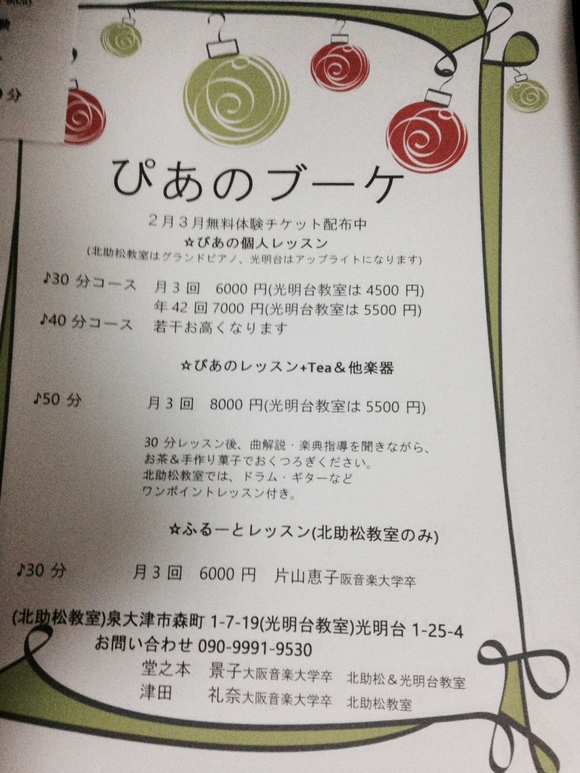 分
ぴあのブーケ
２月３月無料体験チケット配布中
☆ぴあの個人レッスン
(北助松教室はグランドピアノ、光明台はアップライトになります)
♪30 分コース 月３回 6000 円(光明台教室は 4500 円)
年 42 回 7000 円(光明台教室は 5500 円)
♪40 分コース 若干お高くなります
☆ぴあのレッスン+Tea＆他楽器
♪50 分 月３回 8000 円(光明台教室は 5500 円)
30 分レッスン後、曲解説・楽典指導を聞きながら、
お茶＆手作り菓子でおくつろぎください。
北助松教室では、ドラム・ギターなど
ワンポイントレッスン付き。
☆ふるーとレッスン(北助松教室のみ)
♪30 分 月３回 6000 円 片山恵子阪音楽大学卒
(北助松教室)泉大津市森町 1-7-19(光明台教室)光明台 1-25-4
お問い合わせ 090-9991-9530
堂之本 景子大阪音楽大学卒 北助松＆光明台教室
津田 礼奈大阪音楽大学卒 北助松教室